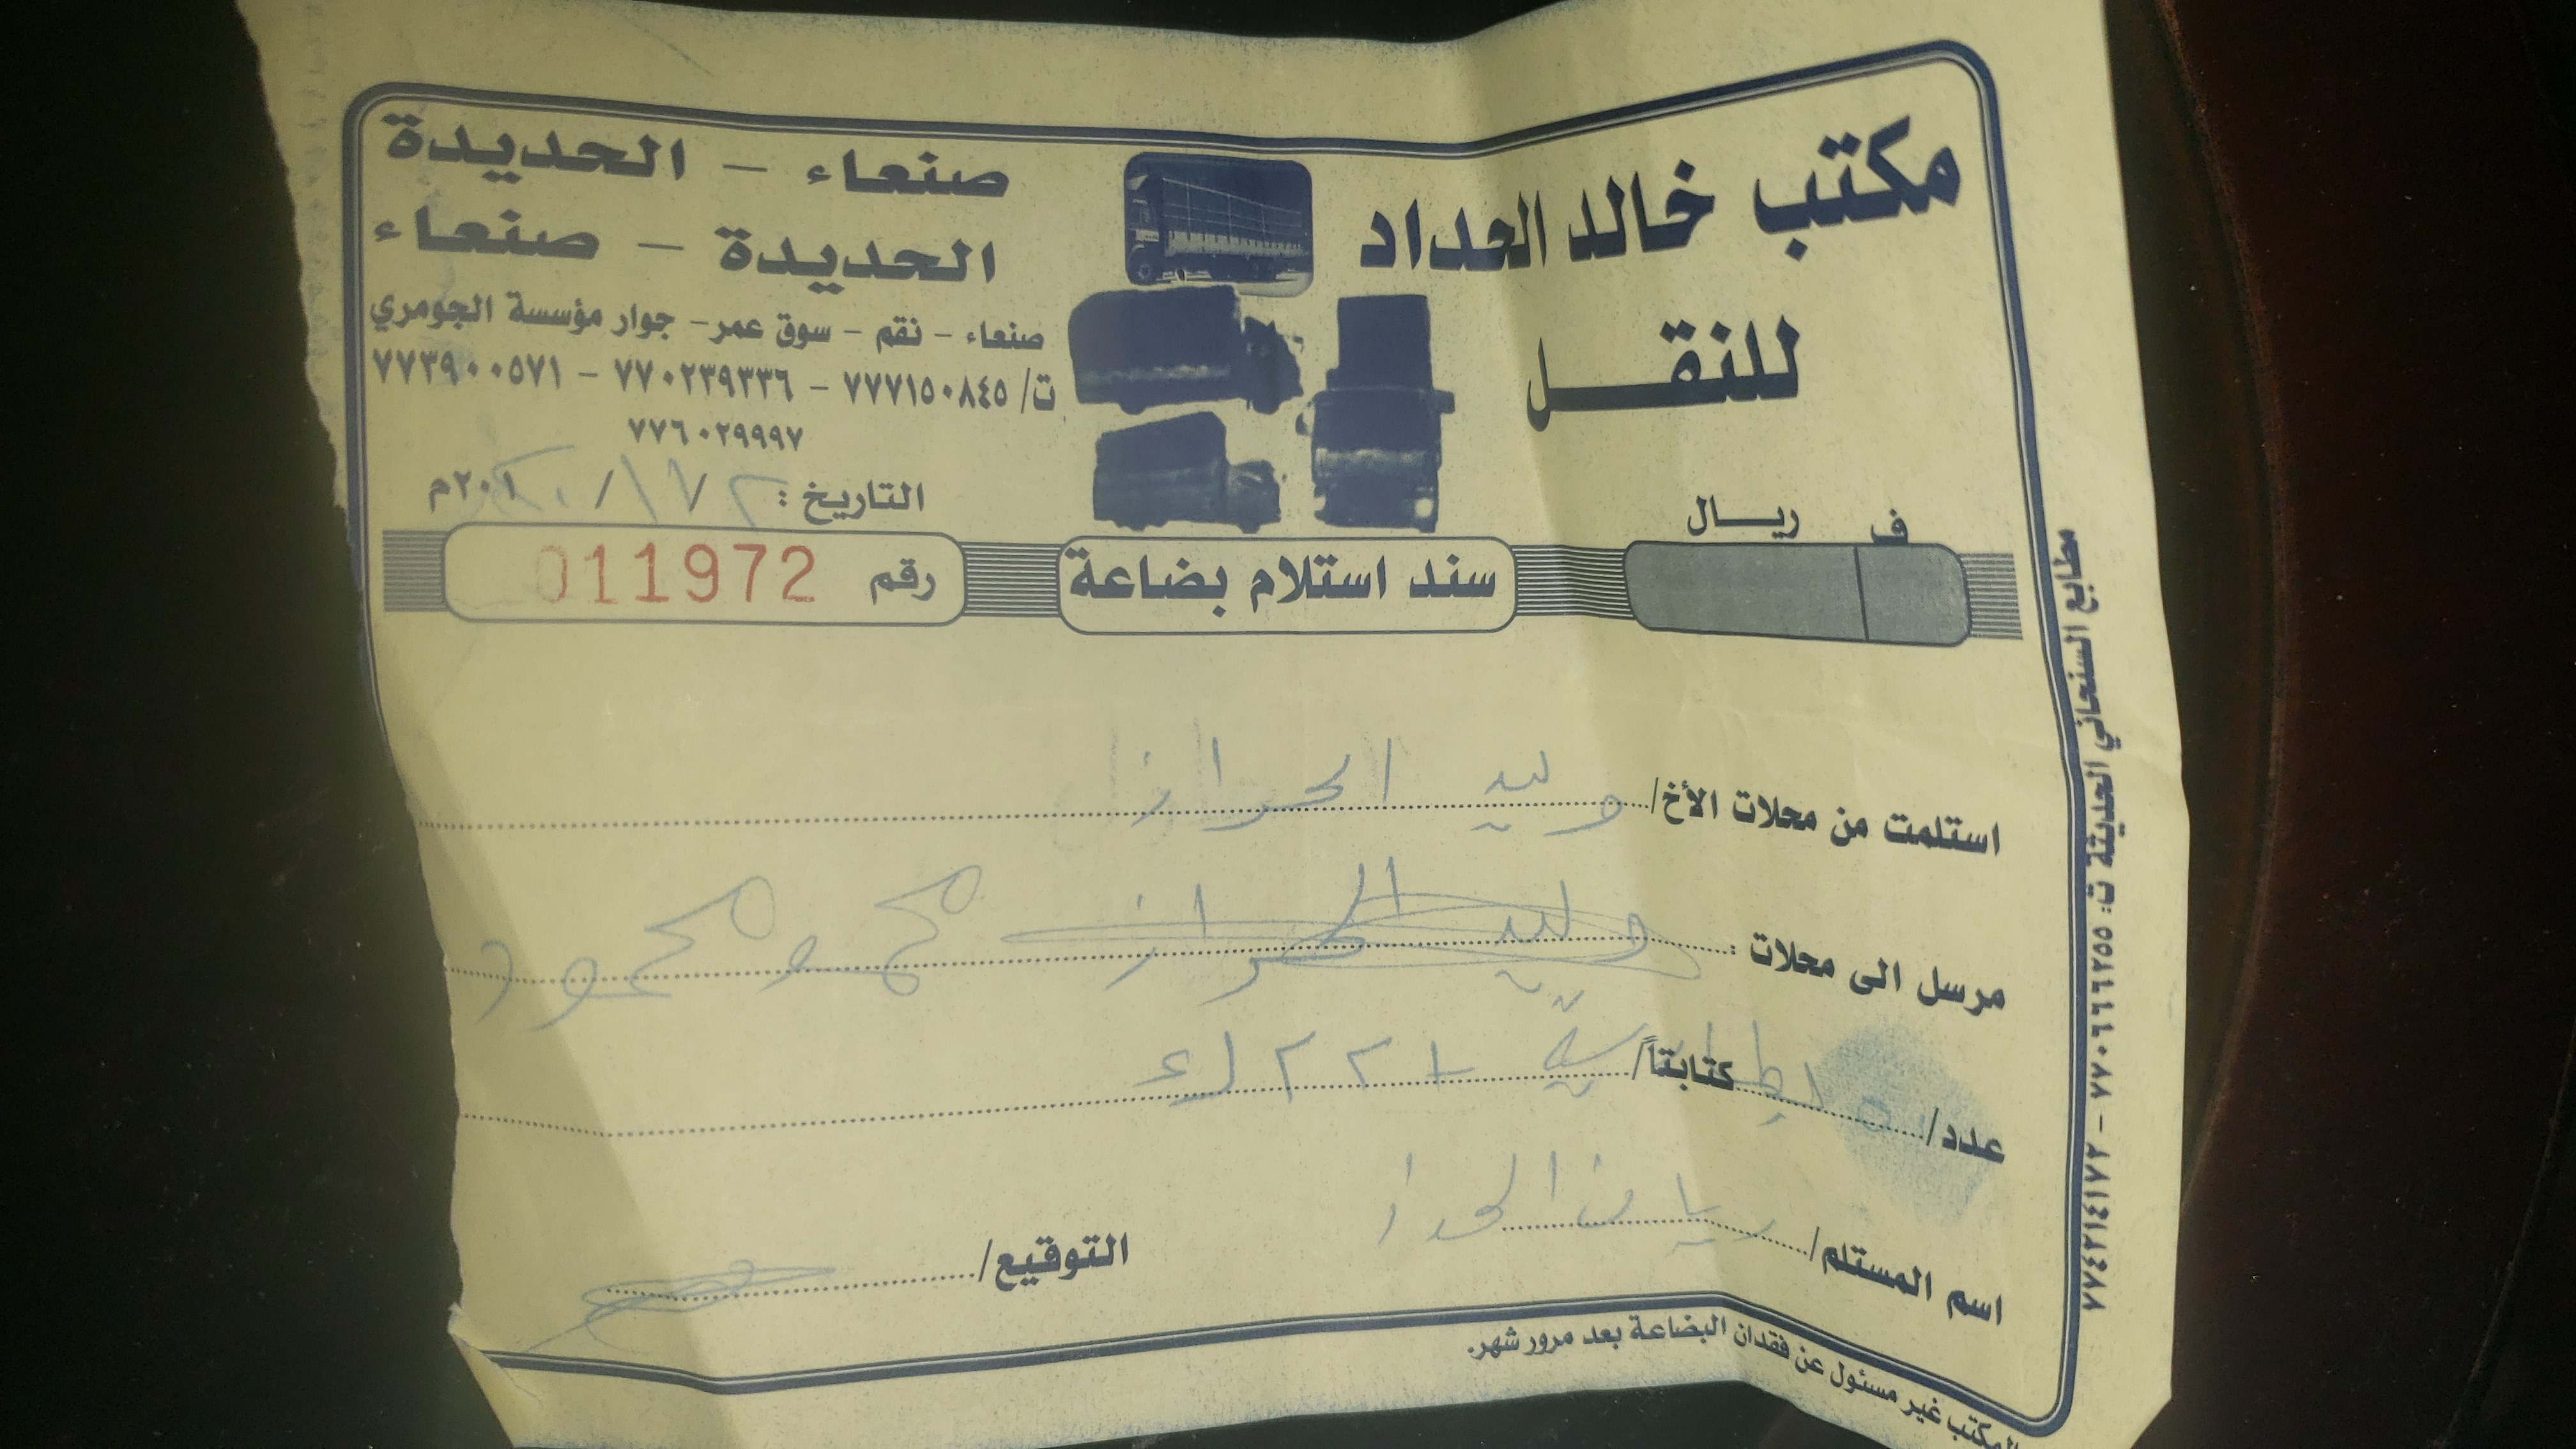 مكتب خالد الحداد
للنقل
صنعاء - الحديدة
الحديدة - صنعاء
صنعاء - نقم - سوق عمر - جوار مؤسسة الجومري
ت/ ٧٧٧١٥٠٨٤٥ - ٧٧٠٢٣٩٣٣٦ - ٧٧٣٩٠٠٥٧١
٧٧٦٠٢٩٩٩٧
التاريخ : / / ٢٠١م
ف ريال
سند استلام بضاعة
رقم 011972
استلمت من محلات الأخ/ وليد الحراز
مرسل الى محلات : وليد الحراز محمد محمود
عدد/ كتابتاً/
اسم المستلم/
التوقيع/
المكتب غير مسئول عن فقدان البضاعة بعد مرور شهر.
مطابع السنحاني الحديثة ت: